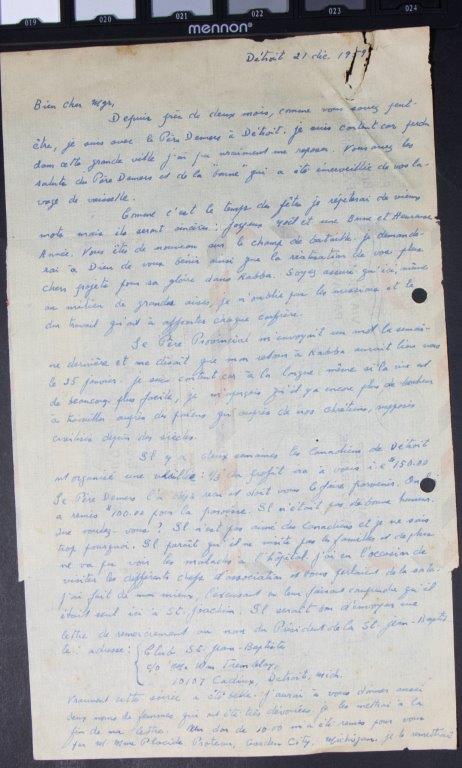 019 020 021 022 023 024
mennon
Détroit 21 déc. 19
Bien cher Mgr,
Depuis près de deux mois, comme vous savez peut-
être, je suis avec le Père Demers à Détroit. Je suis content car perdu
dans cette grande ville j'ai pu vraiment me reposer. Vous avez les
saluts du Père Demers et de la bonne qui a été émerveillée de vos la-
vage de vaisselle.
Comme c'est le temps des fêtes je répéterai de vieux
mots mais ils seront sincères: Joyeux Noël et une Bonne et Heureuse
Année. Vous êtes de nouveau sur le champ de bataille. Je demande-
rai à Dieu de vous bénir ainsi que la réalisation de vos plus
chers projets pour sa gloire dans Kabba. Soyez assuré qu'ici, même
au milieu de grandes aises, je n'oublie pas les missions et le
dur travail qu'ont à affronter chaque confrère.
Le Père Provincial m'envoyait un mot la semai-
ne dernière et me disait que mon retour à Kabba aurait lieu vers
le 25 janvier. Je suis content car à la longue même si la vie est
de beaucoup plus facile, je m'aperçois qu'il y a encore plus de bonheur
à travailler auprès des païens qu'auprès de nos chrétiens, supposés
civilisés depuis des siècles.
Il y a deux semaines les Canadiens de Détroit
ont organisé une : 1/3 du profit va à vous i.e $150.00
Le Père Demers l'a déjà reçu et doit vous le faire parvenir. On lui
a remis $100.00 pour la paroisse. Il n'était pas de bonne humeur.
Que voulez-vous? Il n'est pas aimé des Canadiens et je ne sais
trop pourquoi. Il paraît qu'il ne visite pas les familles et de plus
ne va pas voir les malades à l'hôpital. J'ai eu l'occasion de
visiter les différents chefs d'association et tous parlaient de la sorte.
J'ai fait de mon mieux, l'excusant en leur faisant comprendre qu'il
était seul ici à St. Joachim. Il serait bon d'envoyer une
lettre de remerciement au nom du Président de la St. Jean-Baptiste
le: adresse: Club St. Jean-Baptiste
c/o Mr Wm Tremblay,
10107 Cadieux, Détroit, Mich.
Vraiment cette soirée a été belle. J'aurai à vous donner aussi
deux noms de femmes qui ont été très dévouées, je les mettrai à la
fin de ma lettre. Un don de 10.00 m'a été remis pour vous
par M. Mme Placide Proteau, Garden City, Michigan. Je le remettrai